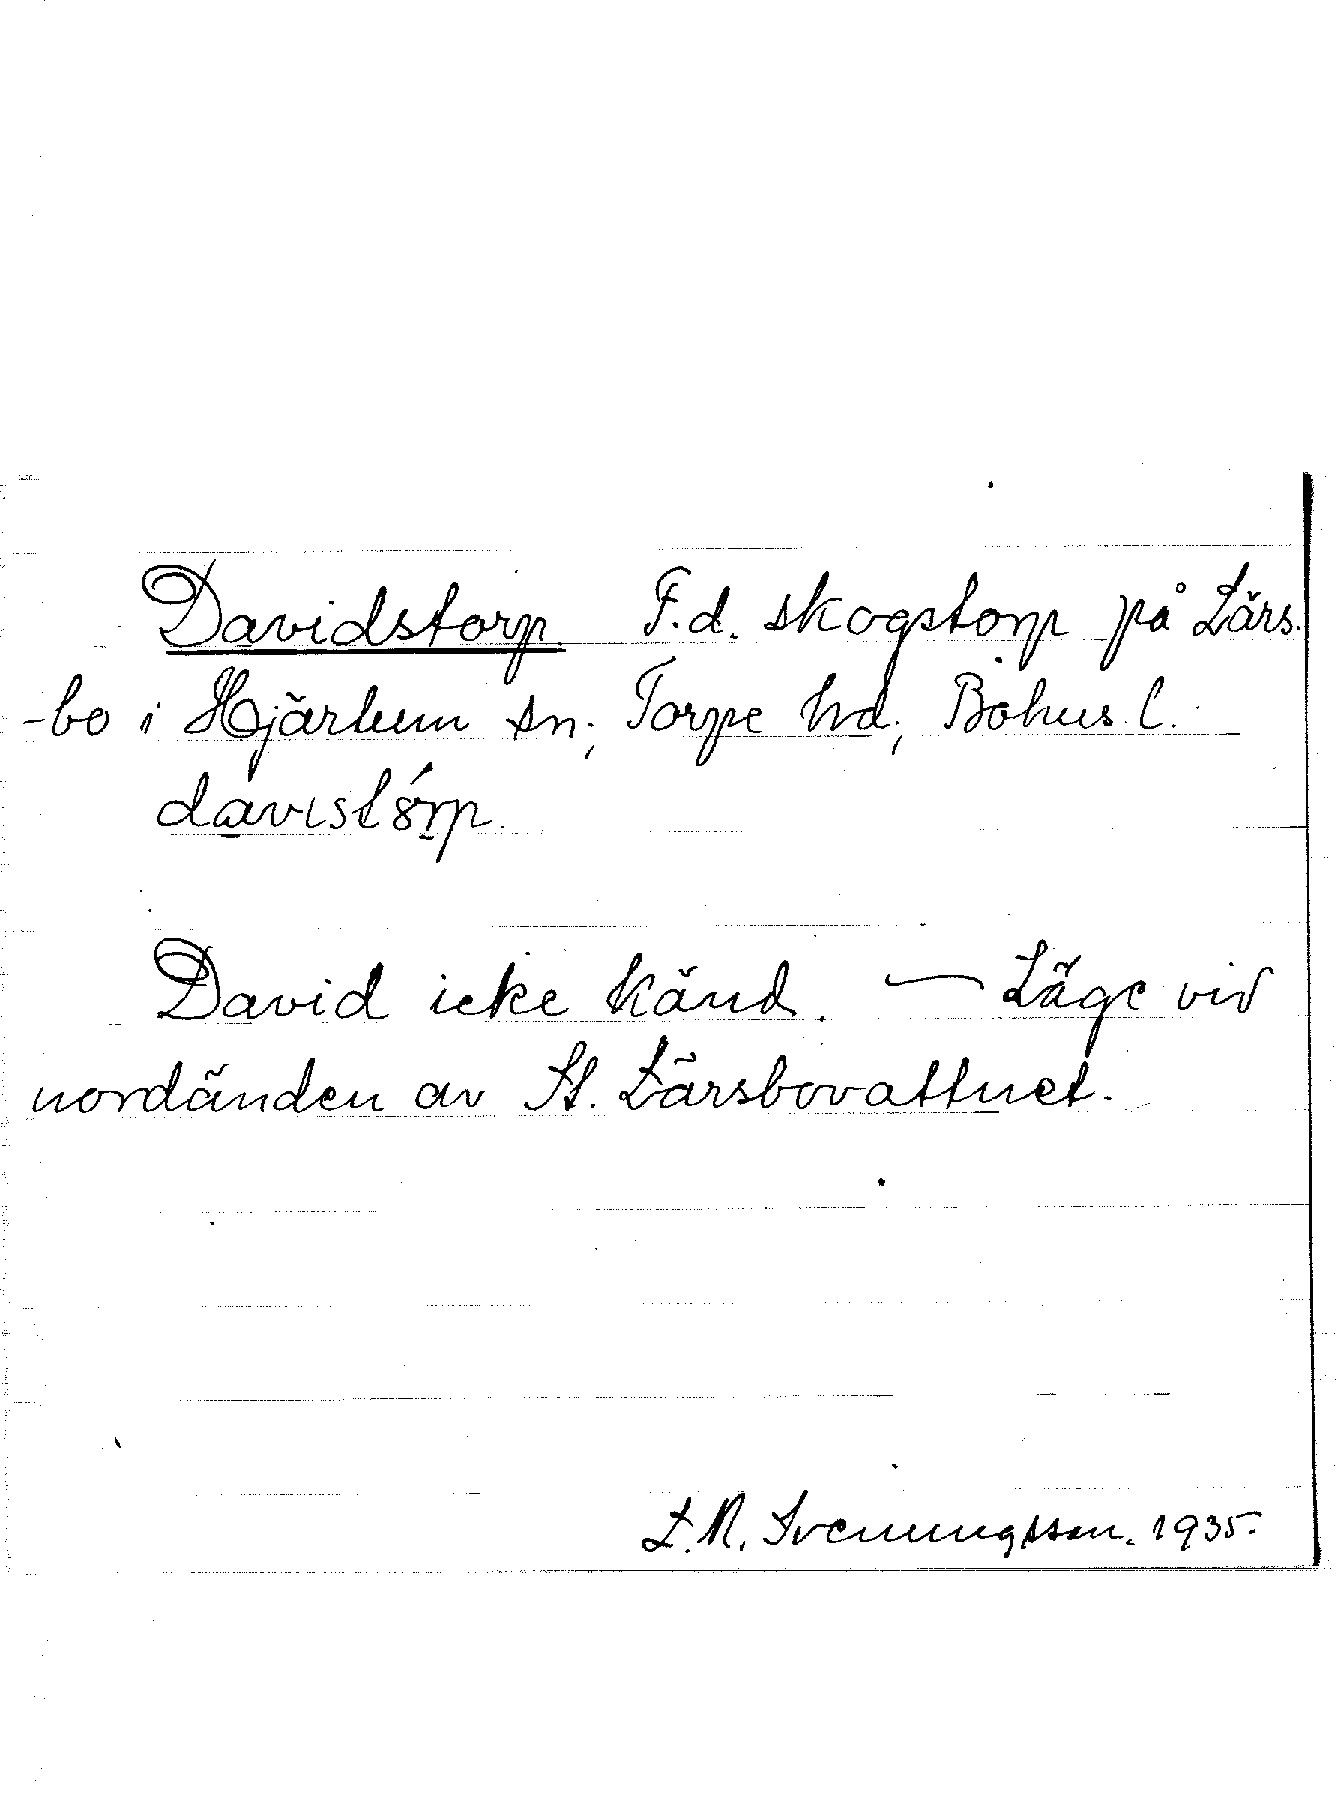 Davidstorp F.d. skogstorp på Lärs-
-bo i Hjärtum sn, Torpe hd, Bohus l.
David icke känd. — Läge vid
nordänden av St. Lärsbovattnet.
L.N. Svenungsson. 1935.